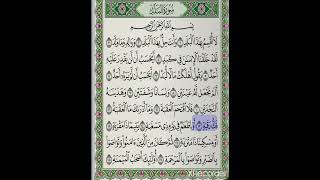 سُورَةُ الْبَلَدِ
بِسْمِ اللَّهِ الرَّحْمَٰنِ الرَّحِيمِ
لَا أُقْسِمُ بِهَٰذَا الْبَلَدِ ۝ وَأَنْتَ حِلٌّ بِهَٰذَا الْبَلَدِ ۝ وَوَالِدٍ وَمَا وَلَدَ ۝
لَقَدْ خَلَقْنَا الْإِنْسَانَ فِي كَبَدٍ ۝ أَيَحْسَبُ أَنْ لَنْ يَقْدِرَ عَلَيْهِ
أَحَدٌ ۝ يَقُولُ أَهْلَكْتُ مَالًا لُبَدًا ۝ أَيَحْسَبُ أَنْ لَمْ يَرَهُ أَحَدٌ ۝
أَلَمْ نَجْعَلْ لَهُ عَيْنَيْنِ ۝ وَلِسَانًا وَشَفَتَيْنِ ۝ وَهَدَيْنَاهُ
النَّجْدَيْنِ ۝ فَلَا اقْتَحَمَ الْعَقَبَةَ ۝ وَمَا أَدْرَاكَ مَا الْعَقَبَةُ ۝
فَكُّ رَقَبَةٍ ۝ أَوْ إِطْعَامٌ فِي يَوْمٍ ذِي مَسْغَبَةٍ ۝ يَتِيمًا ذَا مَقْرَبَةٍ ۝
أَوْ مِسْكِينًا ذَا مَتْرَبَةٍ ۝ ثُمَّ كَانَ مِنَ الَّذِينَ آمَنُوا وَتَوَاصَوْا
بِالصَّبْرِ وَتَوَاصَوْا بِالْمَرْحَمَةِ ۝ أُولَٰئِكَ أَصْحَابُ الْمَيْمَنَةِ ۝
XRecorder